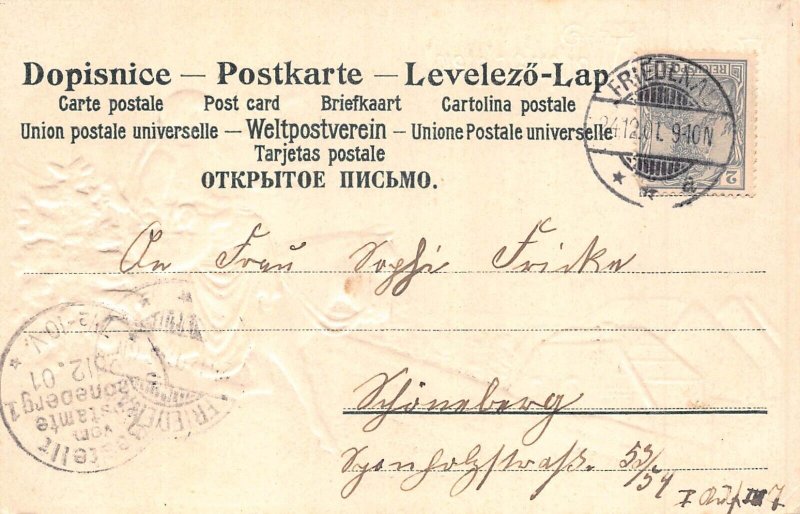 Dopisnice — Postkarte — Levelező-Lap
Carte postale Post card Briefkaart Cartolina postale
Union postale universelle — Weltpostverein — Unione Postale universelle
Tarjetas postale
ОТКРЫТОЕ ПИСЬМО.
FRIEDENA
24.12.01. 9-10N
* a
2
An Frau Sophi Fricke
Schöneberg
Sponholzstraß. 53/54
12.01
vom
Postamte
Schöneberg 1
FRIEDEN